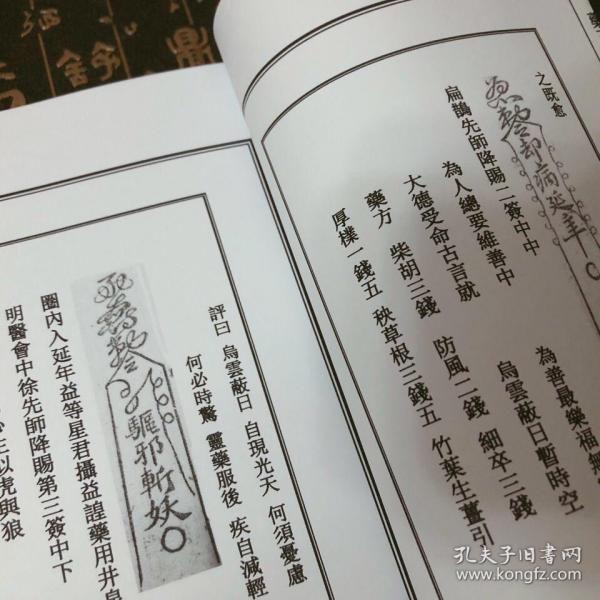 之既愈
却病延年
扁鵲先師降賜二簽中中
為人總要維善中
為善最樂福無
大德受命古言就
烏雲蔽日暫時空
藥方 柴胡三錢 防風二錢 細卒三錢
厚樸一錢五 秧草根三錢五 竹葉生薑引
評曰 烏雲蔽日 自現光天 何須憂慮
何必時驚 靈藥服後 疾自減輕
驅邪斬妖
圈內入延年益等星君攝益諠藥用井泉
明醫會中徐先師降賜第三簽中下
主以虎與狼
孔夫子旧书网
www.kongfz.com